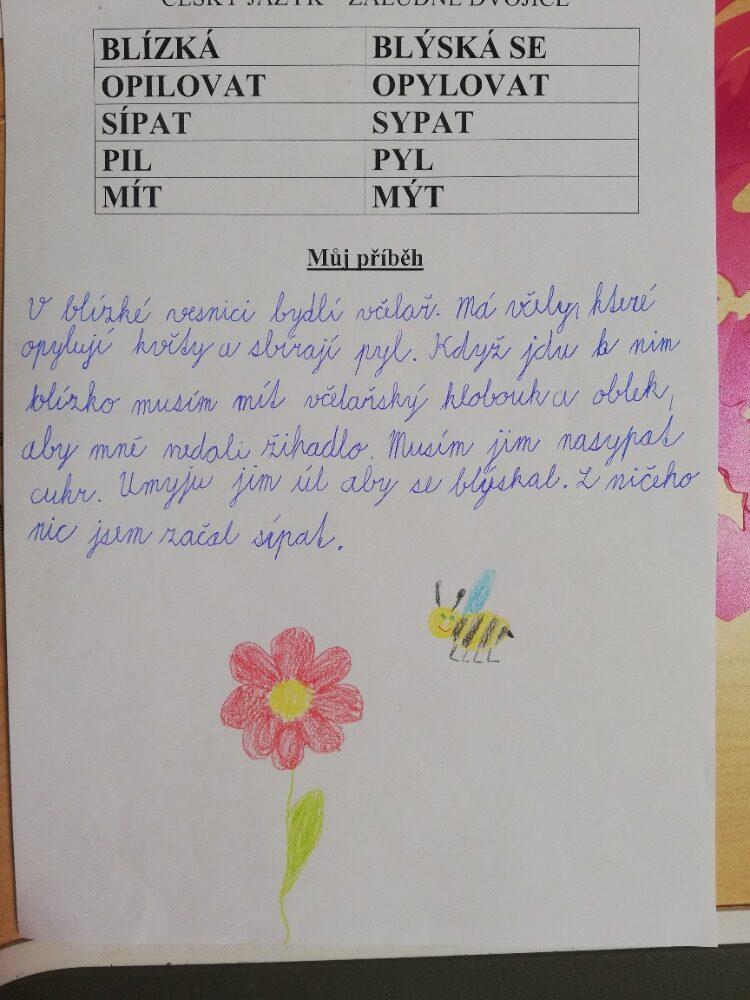 ČESKÝ JAZYK – ZÁLUDNÉ DVOJICE
BLÍZKÁ BLÝSKÁ SE
OPILOVAT OPYLOVAT
SÍPAT SYPAT
PIL PYL
MÍT MÝT
Můj příběh
V blízké vesnici bydlí včelař. Má včely, které
opylují květy a sbírají pyl. Když jdu k nim
blízko musím mít včelařský klobouk a oblek,
aby mně nedali žihadlo. Musím jim nasypat
cukr. Umyju jim úl aby se blýskal. Z ničeho
nic jsem začal sípat.